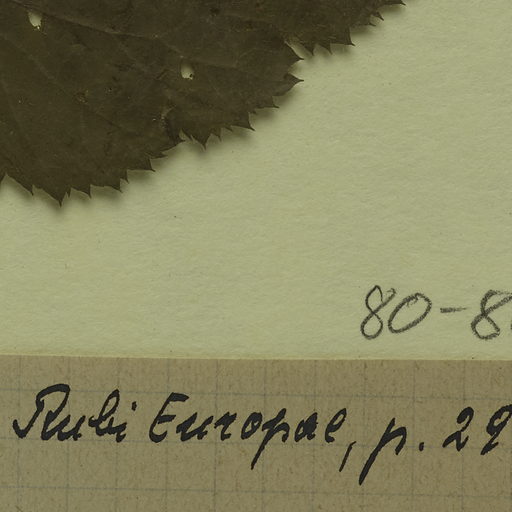 80-8
Rubi Europae, p. 29